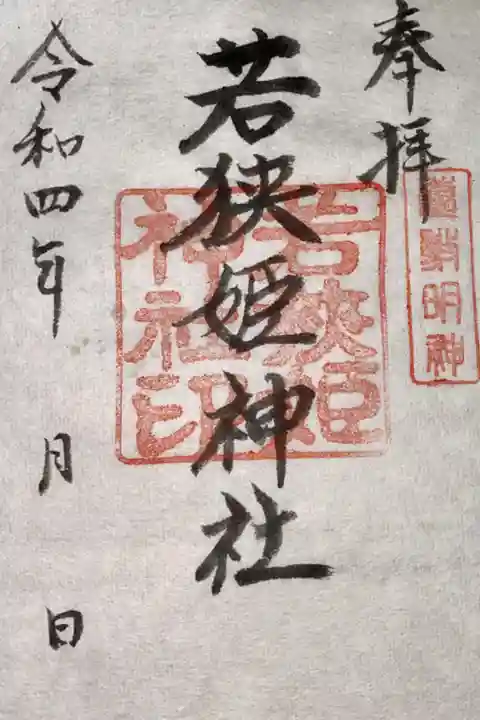 奉拝
若狭姫神社
令和四年 月 日
若狭姫
神社印